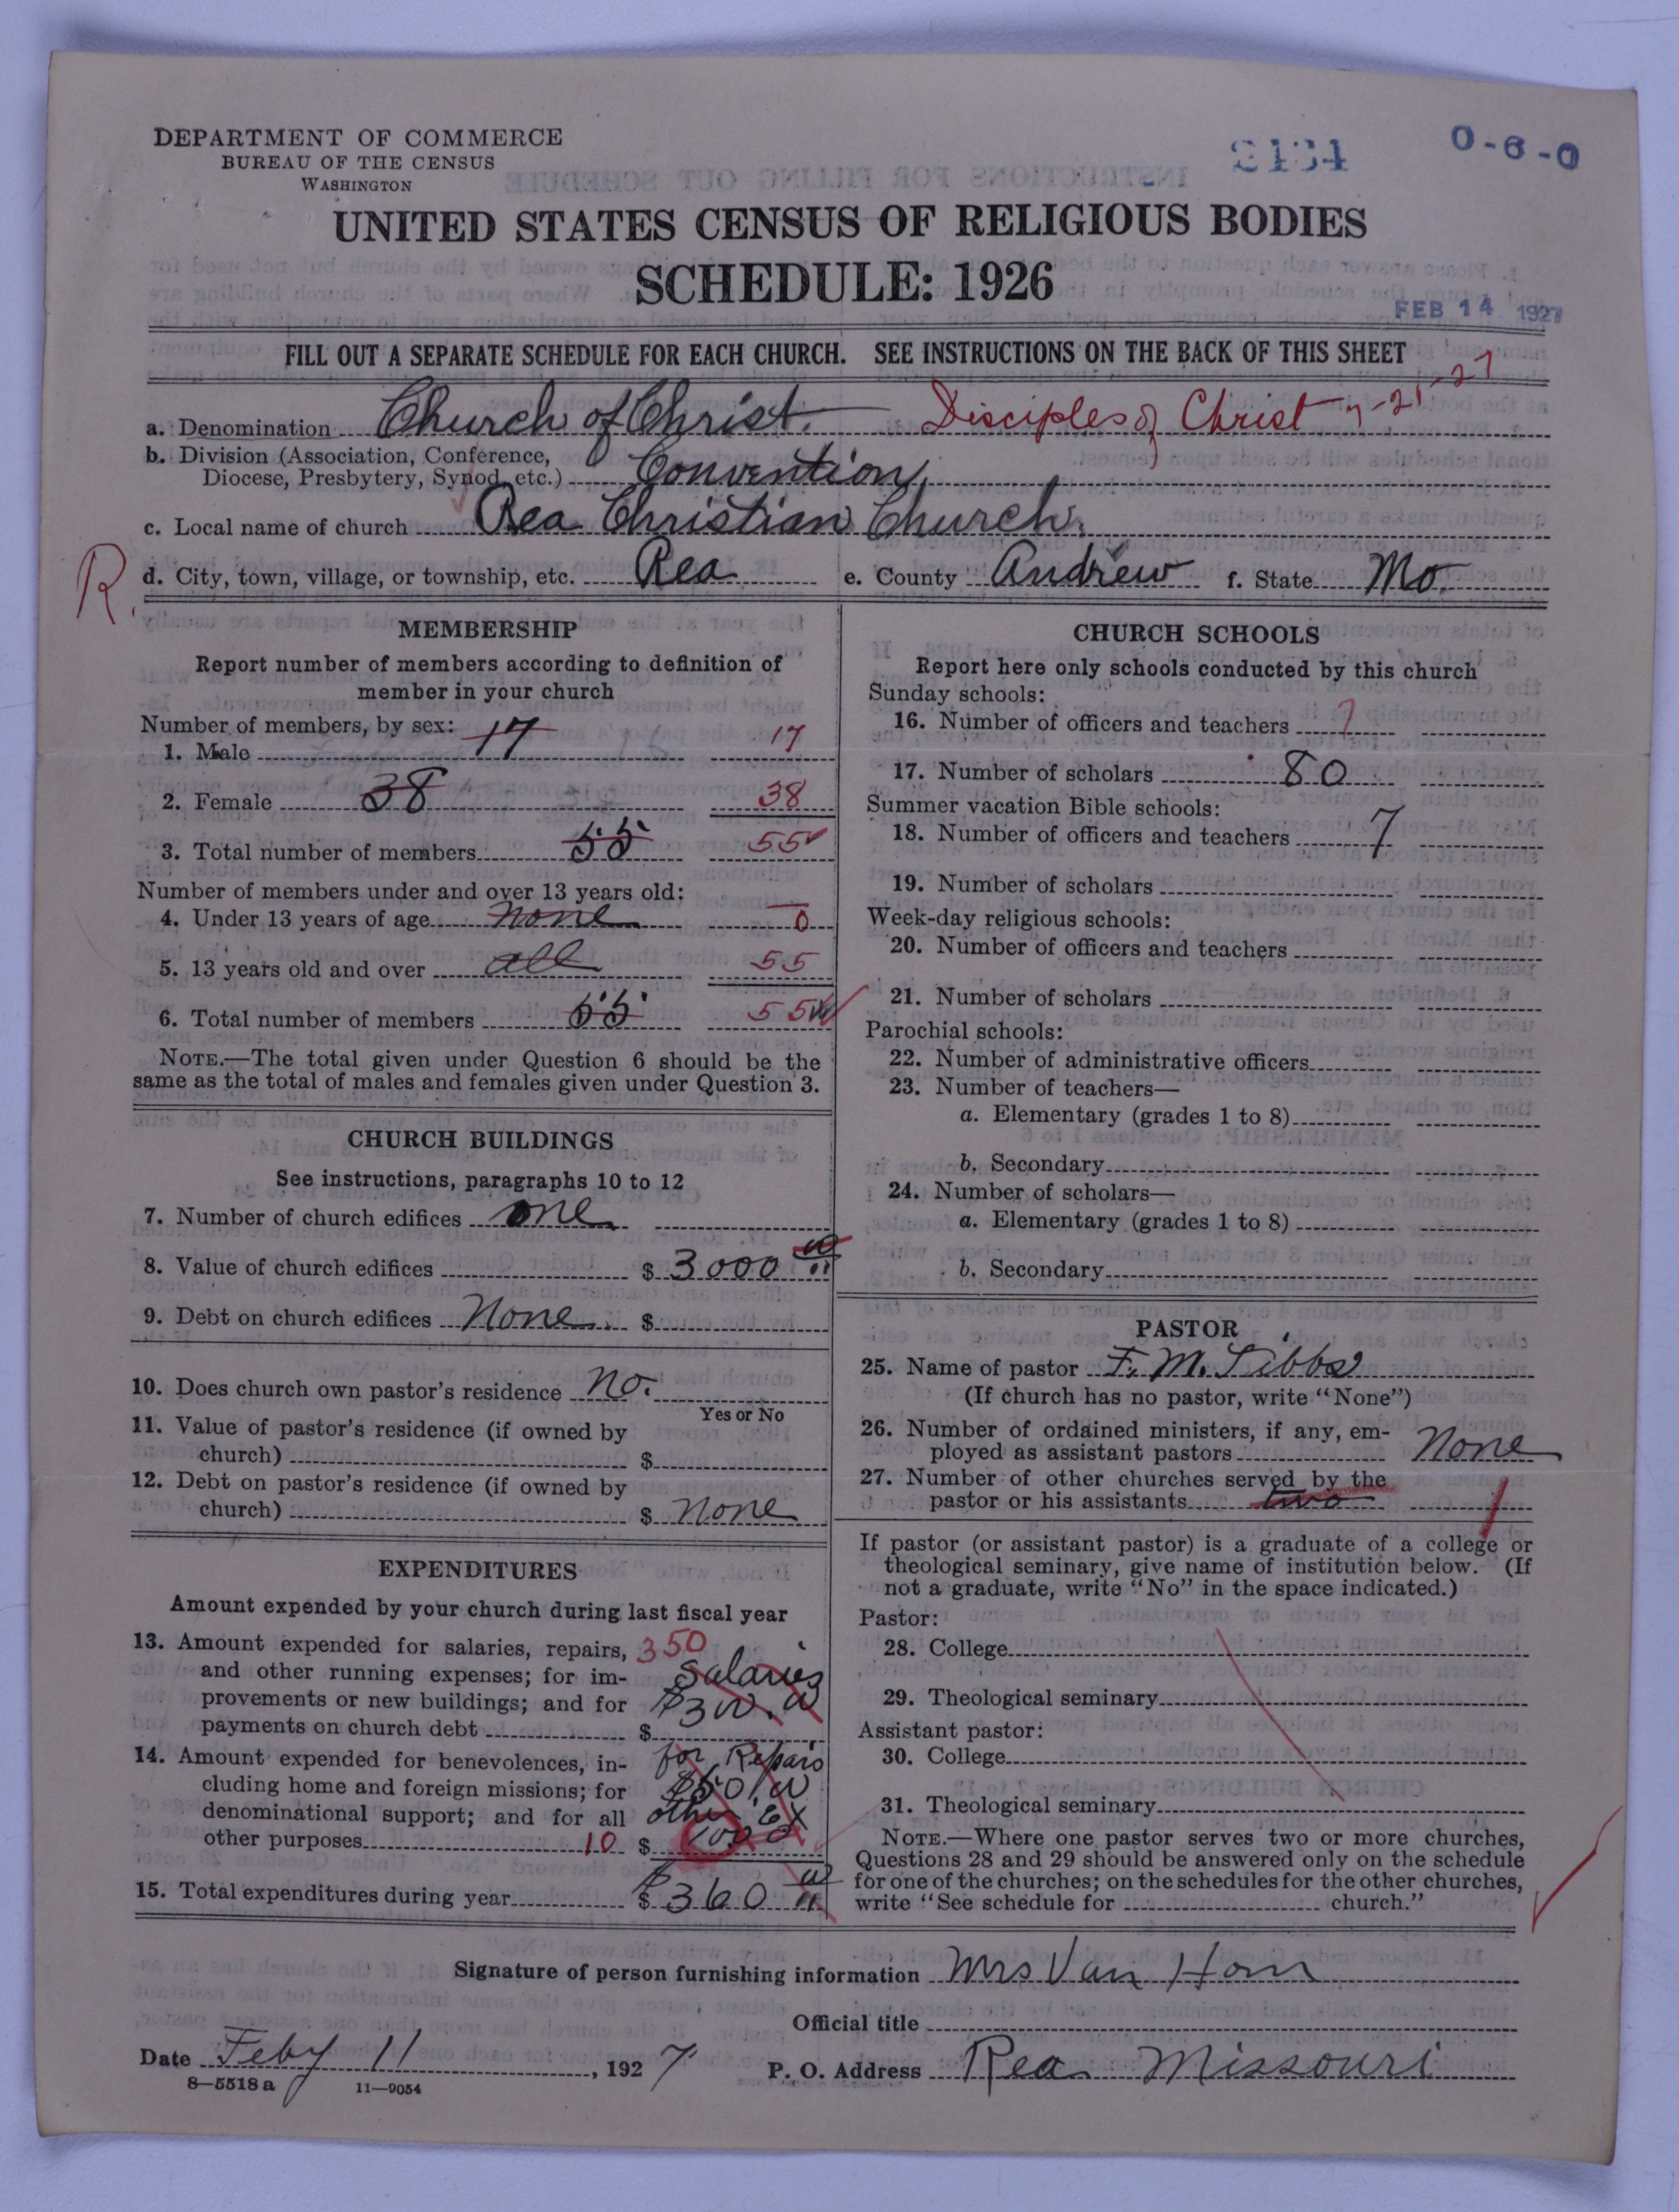 DEPARTMENT OF COMMERCE
BUREAU OF THE CENSUS
WASHINGTON
0-6-0
UNITED STATES CENSUS OF RELIGIOUS BODIES
SCHEDULE: 1926
FEB 14 1927
FILL OUT A SEPARATE SCHEDULE FOR EACH CHURCH. SEE INSTRUCTIONS ON THE BACK OF THIS SHEET
a. Denomination Church of Christ. Disciples of Christ 7-21-27
b. Division (Association, Conference,
Diocese, Presbytery, Synod, etc.) Convention
c. Local name of church Rea Christian Church.
R. d. City, town, village, or township, etc. Rea e. County Andrew f. State Mo.
MEMBERSHIP
Report number of members according to definition of
member in your church
Number of members, by sex:
1. Male 17 17
2. Female 38 38
3. Total number of members 55 55
Number of members under and over 13 years old:
4. Under 13 years of age none 0
5. 13 years old and over all 55
6. Total number of members 55 55
NOTE.—The total given under Question 6 should be the
same as the total of males and females given under Question 3.
CHURCH BUILDINGS
See instructions, paragraphs 10 to 12
7. Number of church edifices one
8. Value of church edifices $ 3000 00
9. Debt on church edifices None. $
10. Does church own pastor's residence No.
Yes or No
11. Value of pastor's residence (if owned by
church) $
12. Debt on pastor's residence (if owned by
church) $ None
EXPENDITURES
Amount expended by your church during last fiscal year
13. Amount expended for salaries, repairs, 350
and other running expenses; for im- Salaries
provements or new buildings; and for $300.00
payments on church debt $
14. Amount expended for benevolences, in- for Repairs
cluding home and foreign missions; for $50.00
denominational support; and for all other Ex
other purposes 10 $ 10.00
15. Total expenditures during year $ 360 00
CHURCH SCHOOLS
Report here only schools conducted by this church
Sunday schools:
16. Number of officers and teachers 7
17. Number of scholars 80
Summer vacation Bible schools:
18. Number of officers and teachers 7
19. Number of scholars
Week-day religious schools:
20. Number of officers and teachers
21. Number of scholars
Parochial schools:
22. Number of administrative officers
23. Number of teachers—
a. Elementary (grades 1 to 8)
b. Secondary
24. Number of scholars—
a. Elementary (grades 1 to 8)
b. Secondary
PASTOR
25. Name of pastor F. M. Tibbs
(If church has no pastor, write "None")
26. Number of ordained ministers, if any, em-
ployed as assistant pastors None
27. Number of other churches served by the
pastor or his assistants two 1
If pastor (or assistant pastor) is a graduate of a college or
theological seminary, give name of institution below. (If
not a graduate, write "No" in the space indicated.)
Pastor:
28. College
29. Theological seminary
Assistant pastor:
30. College
31. Theological seminary
NOTE.—Where one pastor serves two or more churches,
Questions 28 and 29 should be answered only on the schedule
for one of the churches; on the schedules for the other churches,
write "See schedule for church."
Signature of person furnishing information Mrs Van Horn
Official title
Date Feby 11, 1927 P. O. Address Rea Missouri
8—5518 a 11—9054